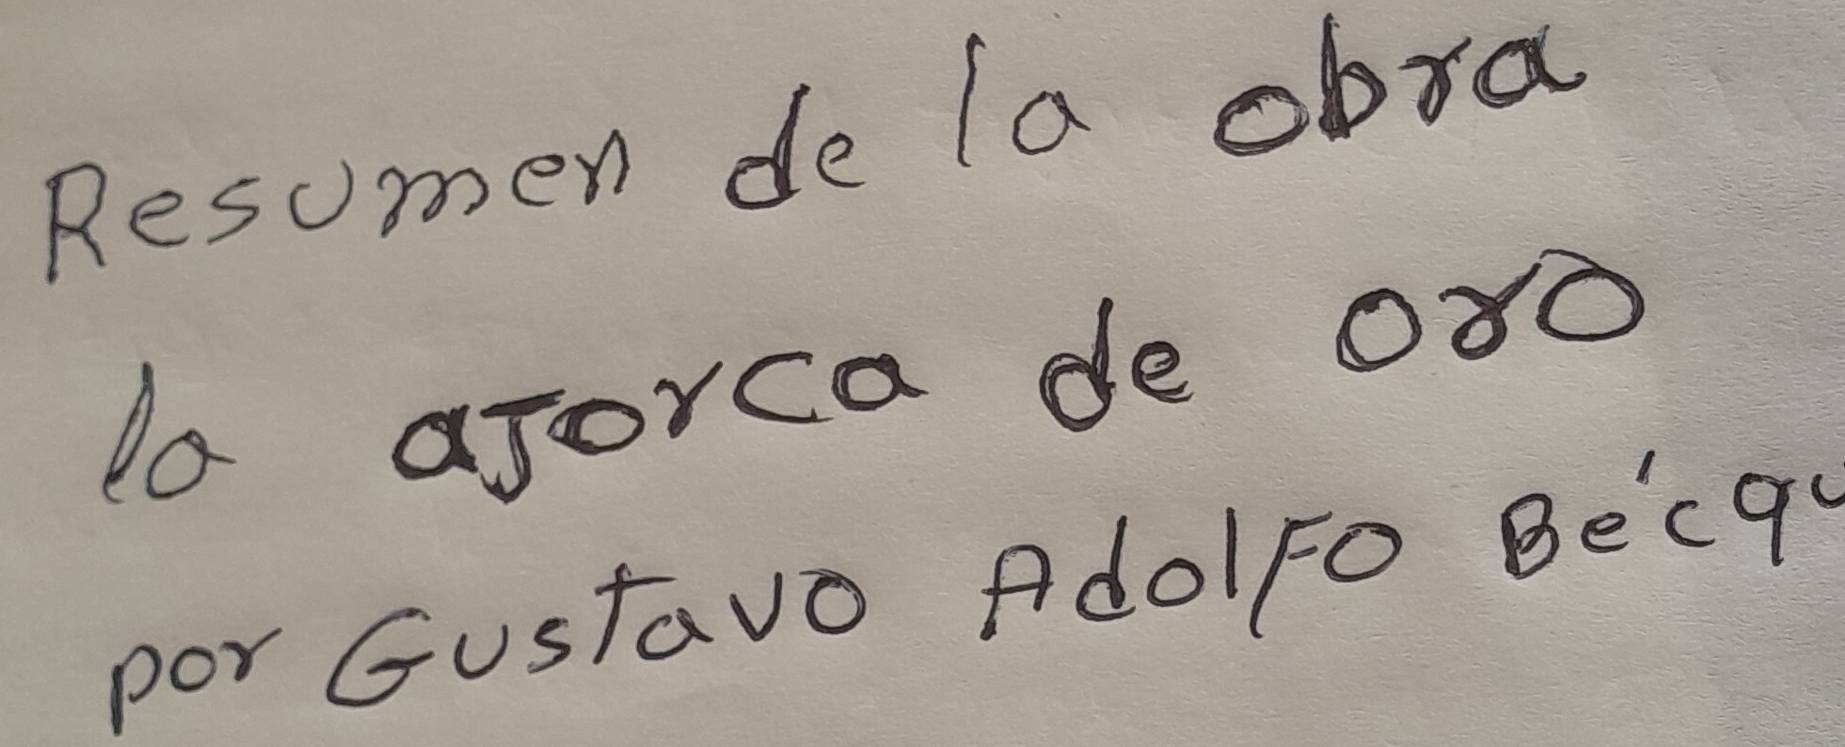 Resumen de la obra
la ajorca de oro
por Gustavo Adolfo Bécqu